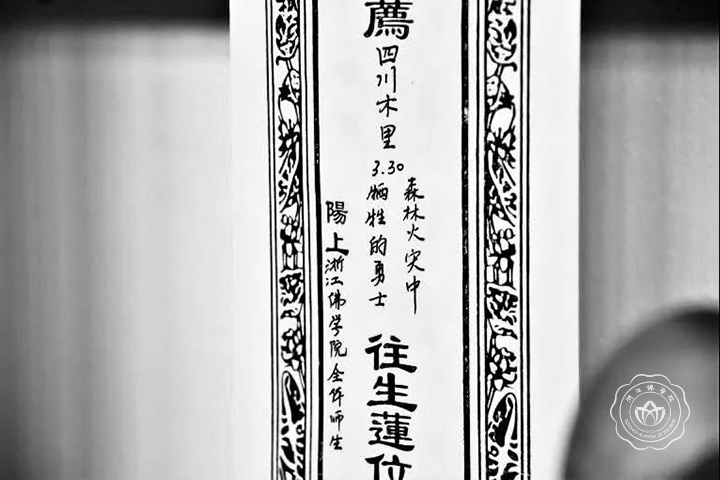 薦四川木里3.30
森林火灾中
牺牲的勇士
往生蓮位
陽上浙江佛学院全体师生
浙江佛学院